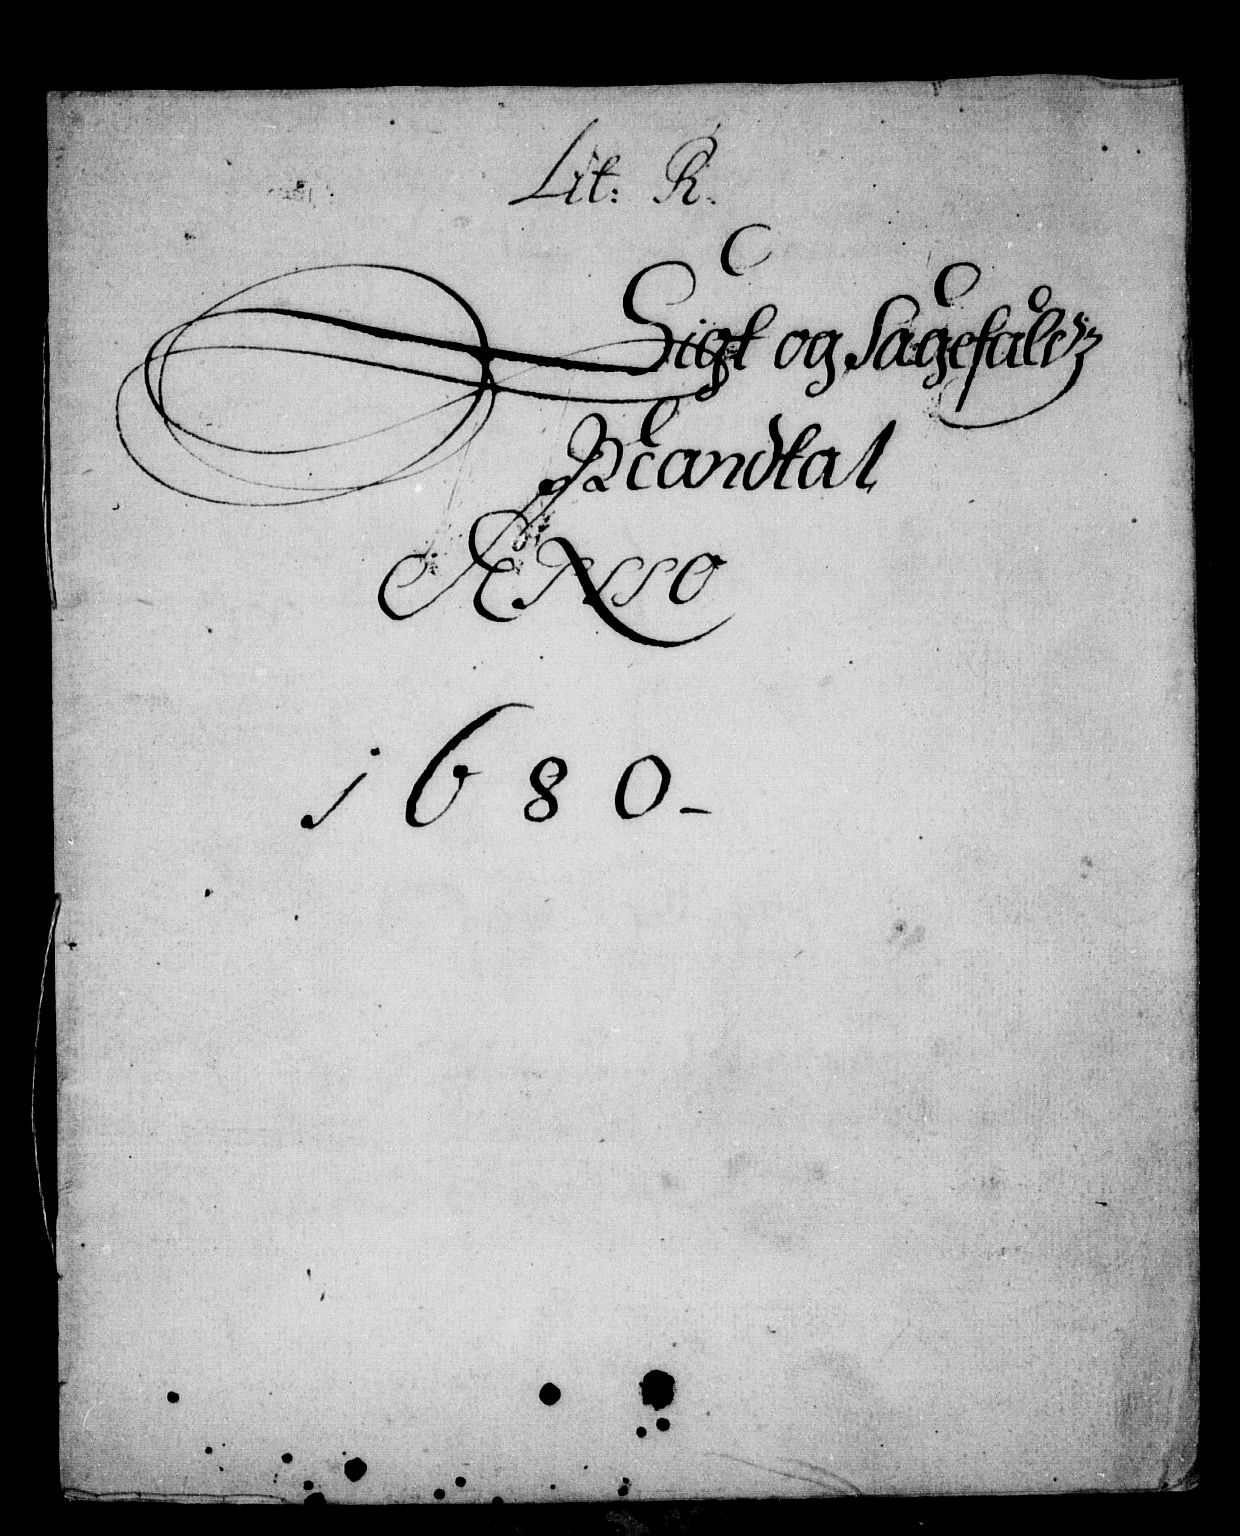 Lit: R.
Sigt og Sagefalds
Mandtal
Anno
1680